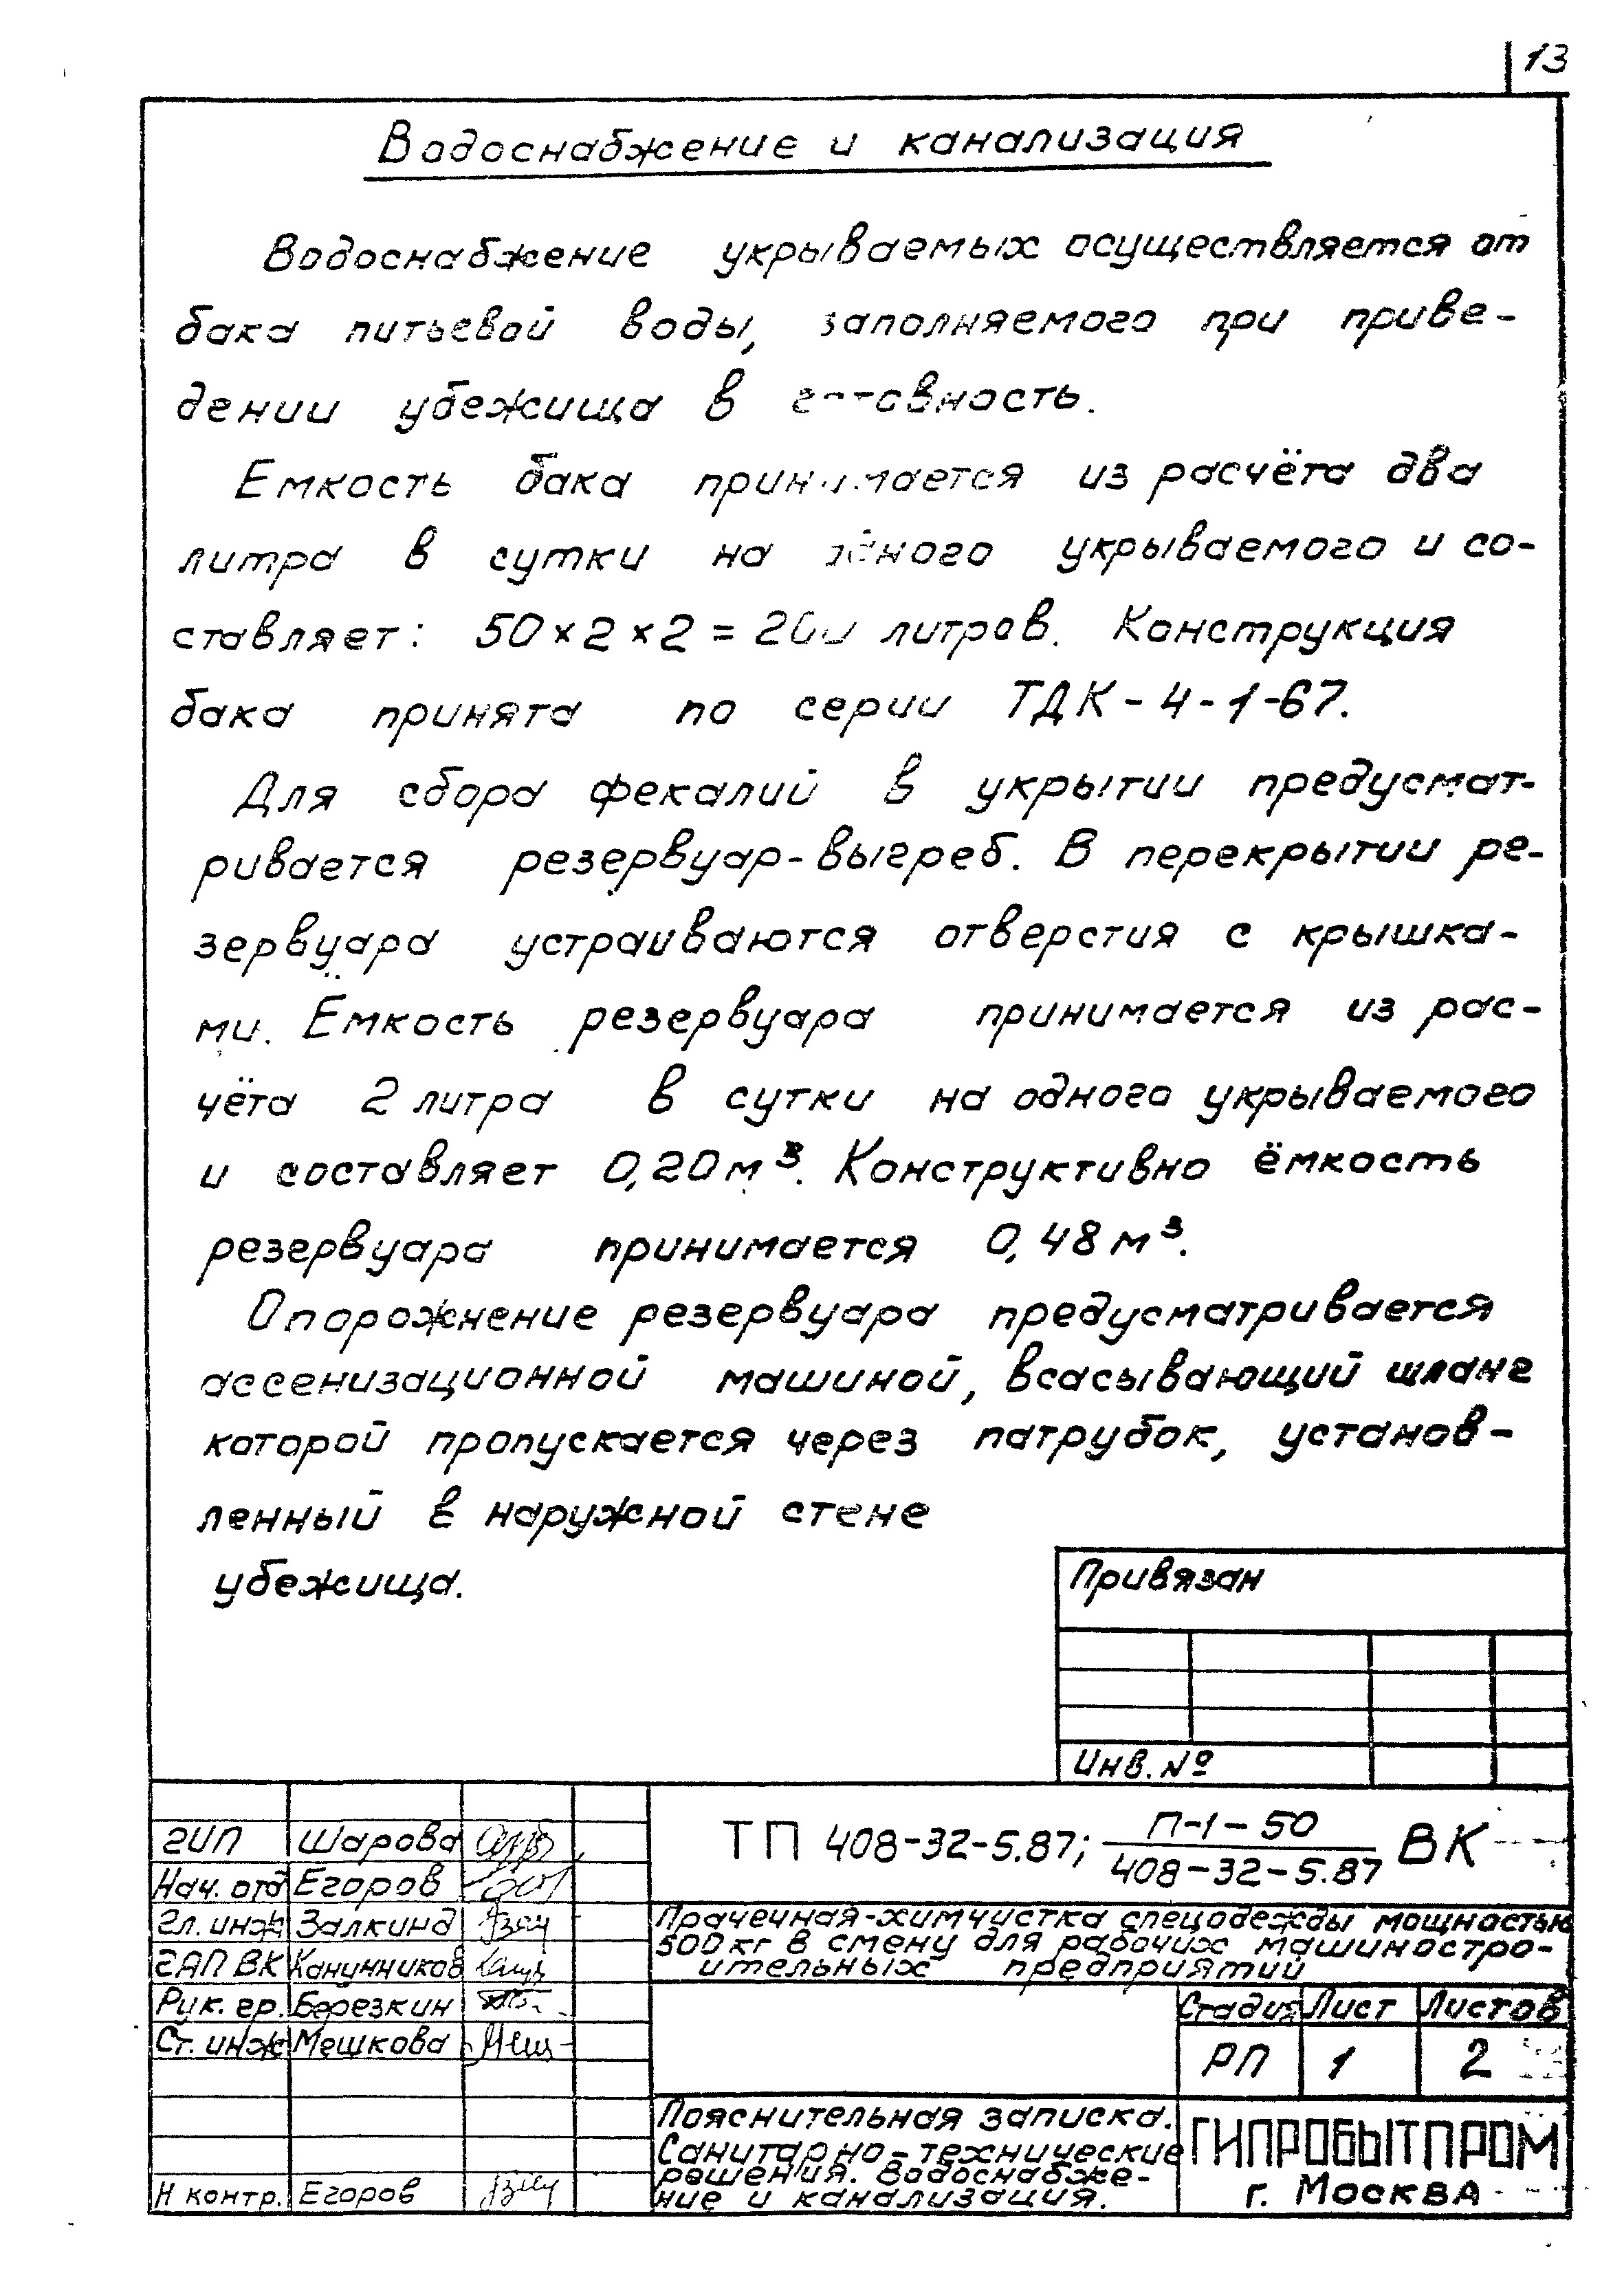 13
Водоснабжение и канализация
Водоснабжение укрываемых осуществляется от
бака питьевой воды, заполняемого при приве-
дении убежища в готовность.
Емкость бака принимается из расчёта два
литра в сутки на одного укрываемого и со-
ставляет: 50×2×2=200 литров. Конструкция
бака принята по серии ТДК-4-1-67.
Для сбора фекалий в укрытии предусмат-
ривается резервуар-выгреб. В перекрытии ре-
зервуара устраиваются отверстия с крышка-
ми. Ёмкость резервуара принимается из рас-
чёта 2 литра в сутки на одного укрываемого
и составляет 0,20м³. Конструктивно ёмкость
резервуара принимается 0,48м³.
Опорожнение резервуара предусматривается
ассенизационной машиной, всасывающий шланг
которой пропускается через патрубок, установ-
ленный в наружной стене
убежища.
Привязан
Инв. №
ГИП Шарова
Нач. отд Егоров
Гл. инж Залкинд
ГАП ВК Канунников
Рук. гр. Березкин
Ст. инж Мешкова
Н контр. Егоров
ТП 408-32-5.87; П-1-50 / 408-32-5.87 ВК
Прачечная-химчистка спецодежды мощностью
500кг в смену для рабочих машиностро-
ительных предприятий
Стадия Лист Листов
РП 1 2
Пояснительная записка.
Санитарно-технические
решения. Водоснабже-
ние и канализация.
ГИПРОБЫТПРОМ
г. Москва